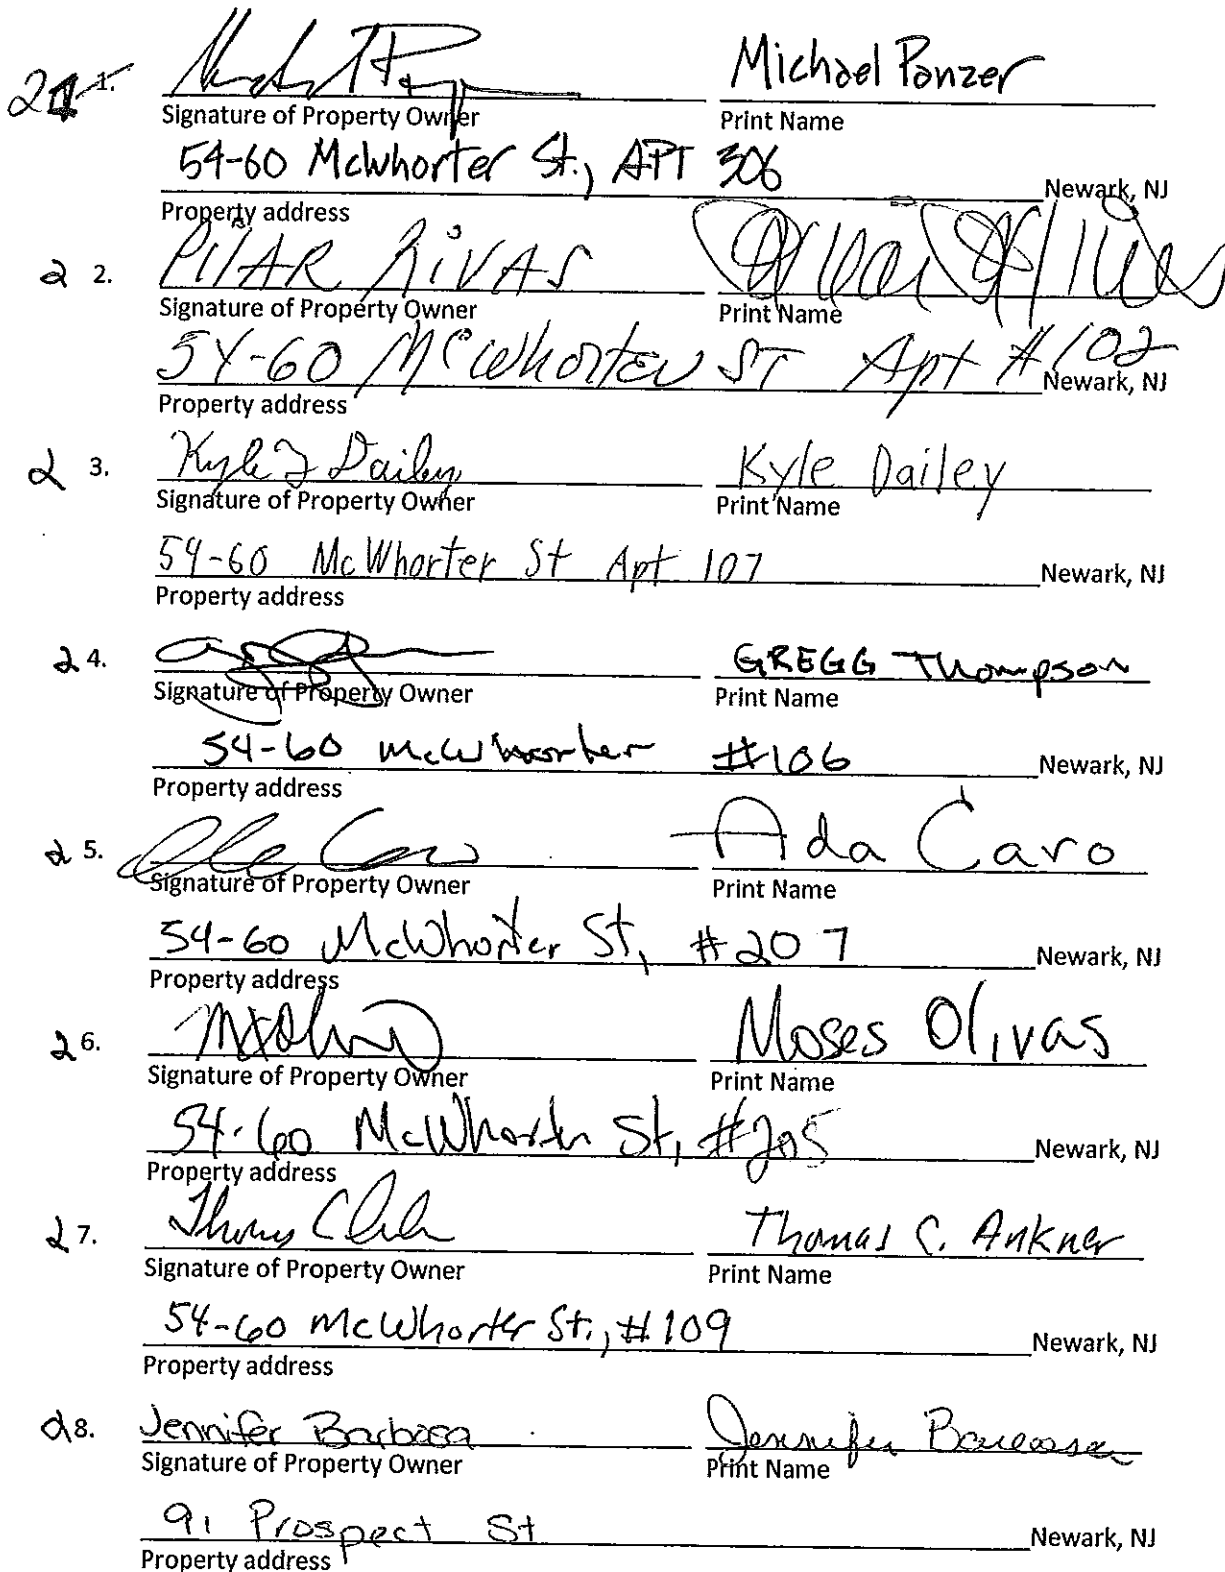 21. Michael Panzer
Signature of Property Owner Print Name
54-60 McWhorter St., APT 306 Newark, NJ
Property address
2 2. PILAR RIVAS
Signature of Property Owner Print Name
54-60 McWhorter ST Apt #102 Newark, NJ
Property address
2 3. Kyle J Dailey Kyle Dailey
Signature of Property Owner Print Name
54-60 McWhorter St Apt 107 Newark, NJ
Property address
2 4. GREGG Thompson
Signature of Property Owner Print Name
54-60 McWhorter #106 Newark, NJ
Property address
2 5. Ada Caro Ada Caro
Signature of Property Owner Print Name
54-60 McWhorter St, #207 Newark, NJ
Property address
2 6. Moses Olivas
Signature of Property Owner Print Name
54-60 McWhorter St, #205 Newark, NJ
Property address
2 7. Thomas C. Ankner
Signature of Property Owner Print Name
54-60 McWhorter St., #109 Newark, NJ
Property address
2 8. Jennifer Barbosa Jennifer Barbosa
Signature of Property Owner Print Name
91 Prospect St Newark, NJ
Property address